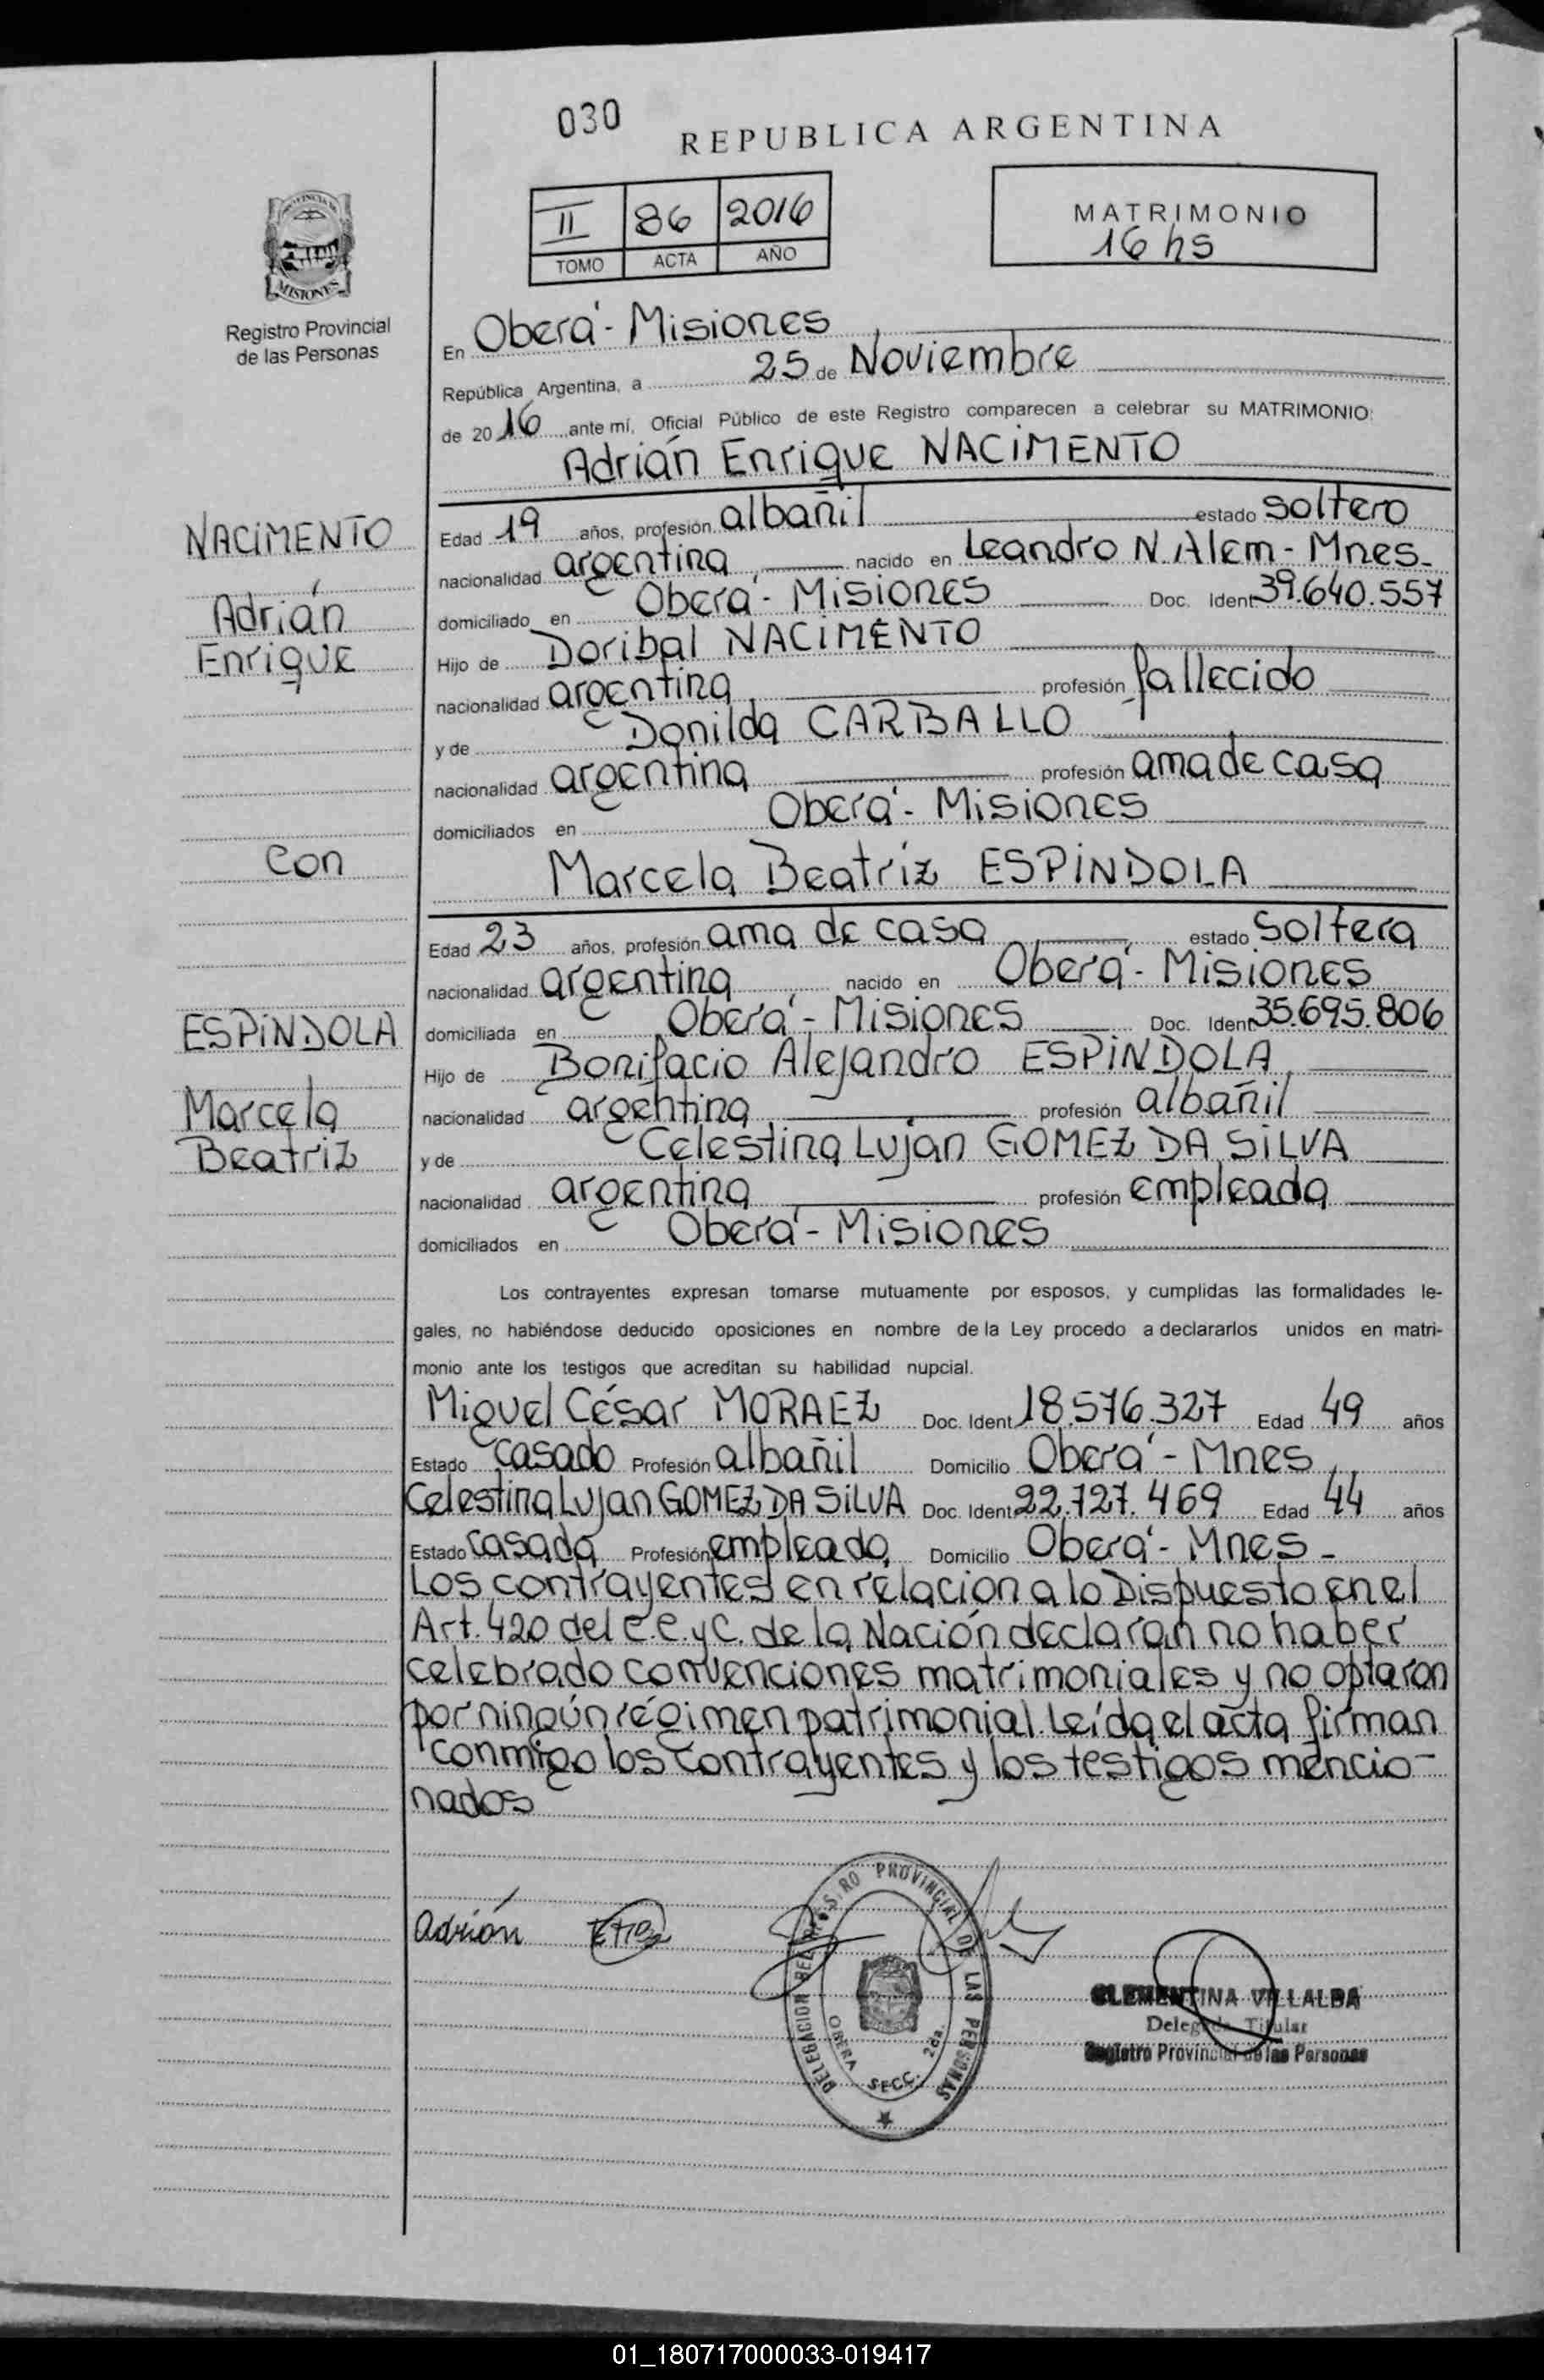 030
REPUBLICA ARGENTINA
II 86 2016
TOMO ACTA AÑO
MATRIMONIO
16 hs
PROVINCIA DE
MISIONES
Registro Provincial
de las Personas
En Oberá - Misiones
República Argentina, a 25 de Noviembre
de 2016 ante mí, Oficial Público de este Registro comparecen a celebrar su MATRIMONIO:
Adrián Enrique NACIMENTO
NACIMENTO
Adrián
Enrique
Edad 19 años, profesión albañil estado soltero
nacionalidad argentina nacido en Leandro N. Alem - Mnes.
domiciliado en Oberá - Misiones Doc. Ident 39.640.557
Hijo de Doribal NACIMENTO
nacionalidad argentina profesión fallecido
y de Donilda CARBALLO
nacionalidad argentina profesión ama de casa
domiciliados en Oberá - Misiones
Con
Marcela Beatriz ESPINDOLA
Edad 23 años, profesión ama de casa estado soltera
nacionalidad argentina nacido en Oberá - Misiones
ESPINDOLA
Marcela
Beatriz
domiciliada en Oberá - Misiones Doc. Ident 35.695.806
Hijo de Bonifacio Alejandro ESPINDOLA
nacionalidad argentina profesión albañil
y de Celestina Lujan GOMEZ DA SILVA
nacionalidad argentina profesión empleada
domiciliados en Oberá - Misiones
Los contrayentes expresan tomarse mutuamente por esposos, y cumplidas las formalidades le-
gales, no habiéndose deducido oposiciones en nombre de la Ley procedo a declararlos unidos en matri-
monio ante los testigos que acreditan su habilidad nupcial.
Miguel César MORAEZ Doc. Ident 18.576.327 Edad 49 años
Estado casado Profesión albañil Domicilio Oberá - Mnes
Celestina Lujan GOMEZ DA SILVA Doc. Ident 22.727.469 Edad 44 años
Estado casada Profesión empleada Domicilio Oberá - Mnes -
Los contrayentes en relacion a lo Dispuesto en el
Art. 420 del C.C. y C. de la Nación declaran no haber
celebrado convenciones matrimoniales y no optaron
por ningún régimen patrimonial. Leída el acta firman
conmigo los contrayentes y los testigos mencio-
nados
Adrián
DELEGACION DEL REGISTRO PROVINCIAL DE LAS PERSONAS
OBERA SECC. 2da.
CLEMENTINA VILLALBA
Delegada Titular
Registro Provincial de las Personas
01_180717000033-019417